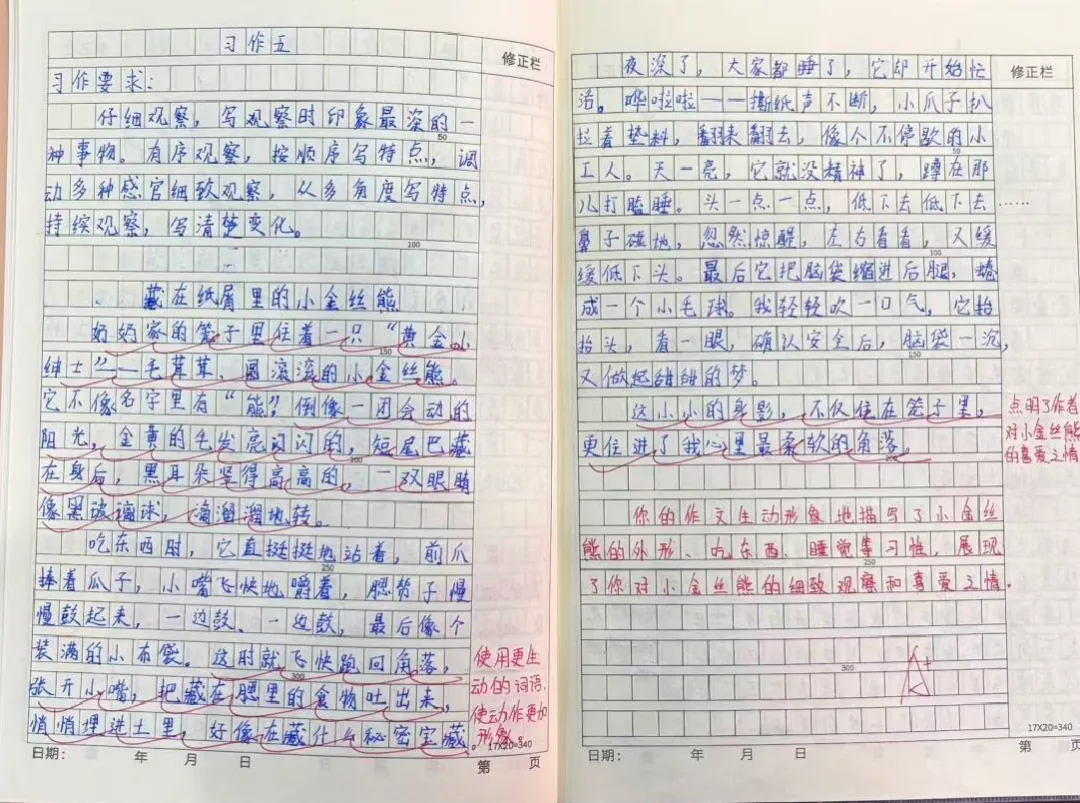 习作五
修正栏
习作要求：
仔细观察，写观察时印象最深的一
50
种事物。有序观察，按顺序写特点，调
动多种感官细致观察，从多角度写特点，
持续观察，写清楚变化。
100
藏在纸屑里的小金丝熊
奶奶家的笼子里住着一只“黄金小
150
绅士”——毛茸茸、圆滚滚的小金丝熊。
它不像名字里有“熊”，倒像一团会动的
阳光，金黄的毛发亮闪闪的，短尾巴藏
200
在身后，黑耳朵坚得高高的，一双眼睛
像黑玻璃球，滴溜溜地转。
吃东西时，它直挺挺地站着，前爪
250
捧着瓜子，小嘴飞快地嚼着，腮帮子慢
慢鼓起来，一边鼓、一边鼓，最后像个
装满的小布袋。这时就飞快跑回角落，
300
使用更生
张开小嘴，把藏在腮里的食物吐出来，
动的词语，
悄悄埋进土里，好像在藏什么秘密宝藏。
使动作更加
形象。
17X20=340
日期： 年 月 日 第 页
修正栏
夜深了，大家都睡了，它却开始忙
活。哗啦啦——撕纸声不断，小爪子扒
拉着垫料，翻来翻去，像个不停歇的小
50
工人。天一亮，它就没精神了，蹲在那
儿打瞌睡。头一点一点，低下去低下去……
鼻子碰地，忽然惊醒，左右看看，又缓
100
缓低下头。最后它把脑袋缩进后腿，蜷
成一个小毛球。我轻轻吹一口气，它抬
抬头，看一眼，确认安全后，脑袋一沉，
150
又做起甜甜的梦。
这小小的身影，不仅住在笼子里，
更住进了我心里最柔软的角落。
200
点明了作者
对小金丝熊
的喜爱之情
你的作文生动形象地描写了小金丝
熊的外形、吃东西、睡觉等习性，展现
250
了你对小金丝熊的细致观察和喜爱之情。
300
A+
17X20=340
日期： 年 月 日 第 页